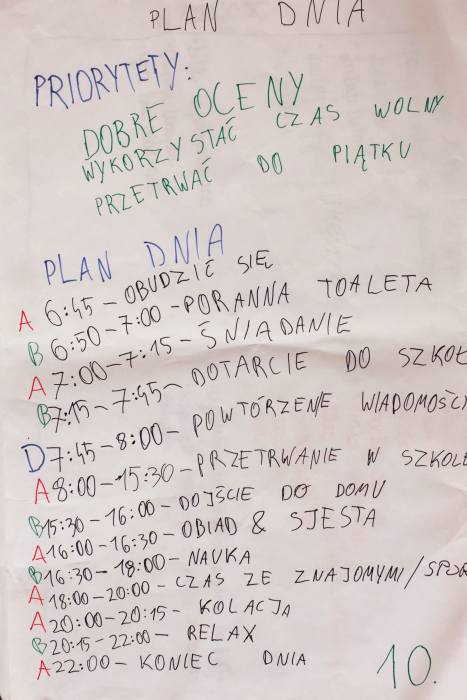 PLAN DNIA
PRIORYTETY:
DOBRE OCENY
WYKORZYSTAĆ CZAS WOLNY
PRZETRWAĆ DO PIĄTKU
PLAN DNIA
A 6:45 – OBUDZIĆ SIĘ
B 6:50 – 7:00 – PORANNA TOALETA
A 7:00 – 7:15 – ŚNIADANIE
B 7:15 – 7:45 – DOTARCIE DO SZKOŁ
D 7:45 – 8:00 – POWTÓRZENIE WIADOMOŚCI
A 8:00 – 15:30 – PRZETRWANIE W SZKOLE
B 15:30 – 16:00 – DOJŚCIE DO DOMU
A 16:00 – 16:30 – OBIAD & SJESTA
B 16:30 – 18:00 – NAUKA
A 18:00 – 20:00 – CZAS ZE ZNAJOMYMI/SPOR
A 20:00 – 20:15 – KOLACJA
B 20:15 – 22:00 – RELAX
A 22:00 – KONIEC DNIA
10.